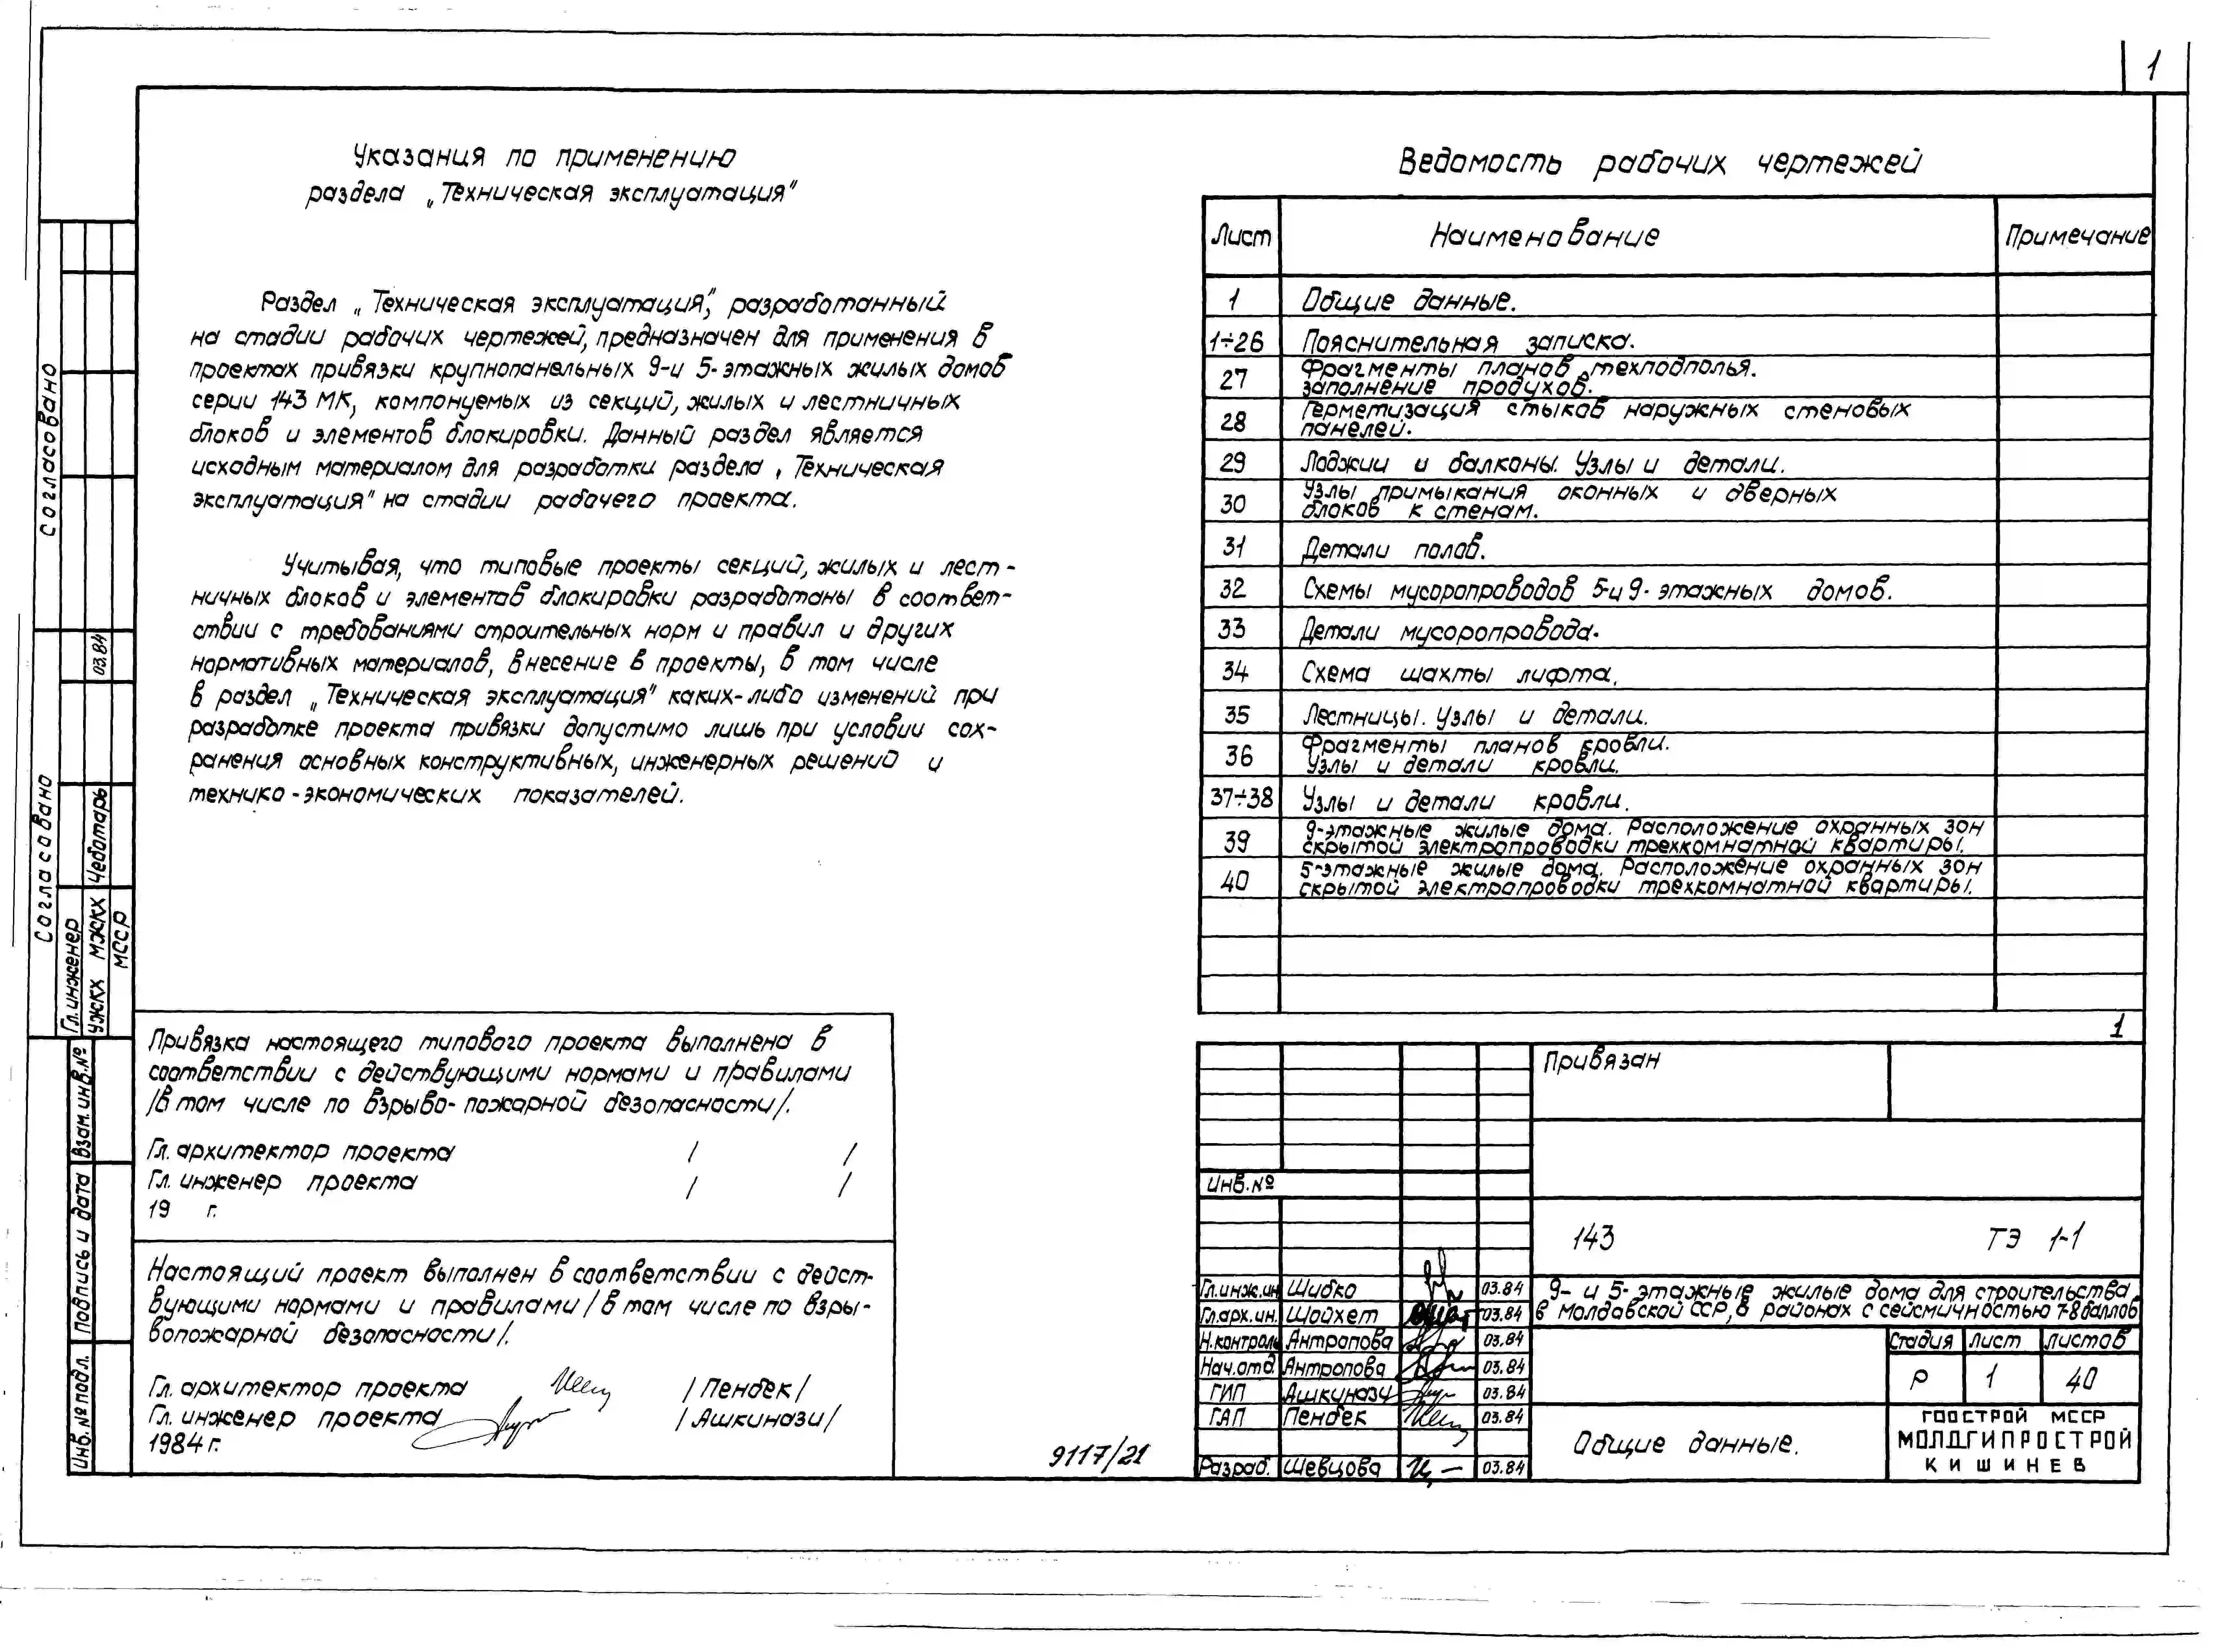 1
Указания по применению
раздела „Техническая эксплуатация"
Раздел „Техническая эксплуатация", разработанный
на стадии рабочих чертежей, предназначен для применения в
проектах привязки крупнопанельных 9-и 5-этажных жилых домов
серии 143 МК, компонуемых из секций, жилых и лестничных
блоков и элементов блокировки. Данный раздел является
исходным материалом для разработки раздела „Техническая
эксплуатация" на стадии рабочего проекта.
Учитывая, что типовые проекты секций, жилых и лест-
ничных блоков и элементов блокировки разработаны в соответ-
ствии с требованиями строительных норм и правил и других
нормативных материалов, внесение в проекты, в том числе
в раздел „Техническая эксплуатация" каких-либо изменений при
разработке проекта привязки допустимо лишь при условии сох-
ранения основных конструктивных, инженерных решений и
технико-экономических показателей.
Привязка настоящего типового проекта выполнена в
соответствии с действующими нормами и правилами
/в том числе по взрыво-пожарной безопасности/.
Гл. архитектор проекта / /
Гл. инженер проекта / /
19 г.
Настоящий проект выполнен в соответствии с дейст-
вующими нормами и правилами /в том числе по взры-
вопожарной безопасности/.
Гл. архитектор проекта /Пендек/
Гл. инженер проекта /Ашкинази/
1984 г.
9117/21
Ведомость рабочих чертежей
Лист Наименование Примечание
1 Общие данные.
1÷26 Пояснительная записка.
27 Фрагменты планов техподполья.
заполнение продухов.
28 Герметизация стыков наружных стеновых
панелей.
29 Лоджии и балконы. Узлы и детали.
30 Узлы примыкания оконных и дверных
блоков к стенам.
31 Детали полов.
32 Схемы мусоропроводов 5-и 9-этажных домов.
33 Детали мусоропровода.
34 Схема шахты лифта.
35 Лестницы. Узлы и детали.
36 Фрагменты планов кровли.
Узлы и детали кровли.
37÷38 Узлы и детали кровли.
39 9-этажные жилые дома. Расположение охранных зон
скрытой электропроводки трехкомнатной квартиры.
40 5-этажные жилые дома. Расположение охранных зон
скрытой электропроводки трехкомнатной квартиры.
1
Привязан
Инв.№
143 ТЭ 1-1
Гл.инж.ин Шибко 03.84
Гл.арх.ин. Шойхет 03.84
Н.контроль Антропова 03.84
Нач.отд Антропова 03.84
ГИП Ашкинази 03.84
ГАП Пендек 03.84
Разраб. Шевцова 03.84
9- и 5-этажные жилые дома для строительства
в Молдавской ССР, в районах с сейсмичностью 7-8 баллов
Стадия лист листов
Р 1 40
Общие данные.
ГОССТРОЙ МССР
МОЛДГИПРОСТРОЙ
КИШИНЕВ
Согласовано
Согласовано
Гл.инженер
УЖКХ МЖКХ Чеботарь 03.84
МССР
Взам.инв.№
Подпись и дата
Инв.№ подл.